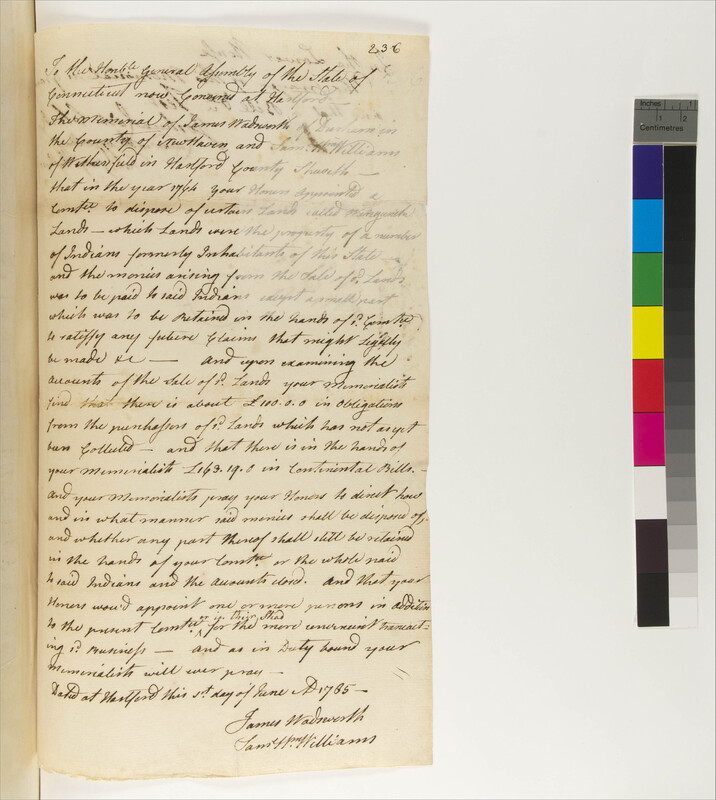 236
To the Honble General Assembly of the State of
Connecticut now Convened at Hartford
The Memorial of James Wadsworth of Durham in
the County of New Haven and Saml. Wm. Williams
of Wethersfield in Hartford County Sheweth —
that in the year 1764 your Honors appointed a
Comtee. to dispose of certain Lands called
Lands — which Lands were the property of a number
of Indians formerly Inhabitants of this State —
and the monies arising from the Sale of sd. Lands
was to be paid to said Indians except a small part
which was to be Retained in the hands of sd. Comtee.
to satisfy any future Claims that might Lightly
be made &c — And upon examining the
Accounts of the Sale of sd. Lands your Memorialist
find that there is about £100.0.0 in Obligations
from the purchasers of sd. Lands which has not as yet
been Collected — and that there is in the hands of
your Memorialists £163.19.0 in Continental Bills. —
And your Memorialists pray your Honors to direct how
and in what manner said monies shall be dispose of,
and whether any part thereof shall still be retained
in the hands of your Comtee. or the whole paid
to said Indians and the Accounts closd. And that your
Honors would appoint one or more persons in addition
to the present Comtee. or in their Stead for the more convenient transact=
ing sd. Business — and as in Duty bound your
Memorialists will ever pray —
Dated at Hartford this 1st. day of June AD 1785 —
James Wadsworth
Saml. Wm. Williams
Inches
1
1
2
Centimetres